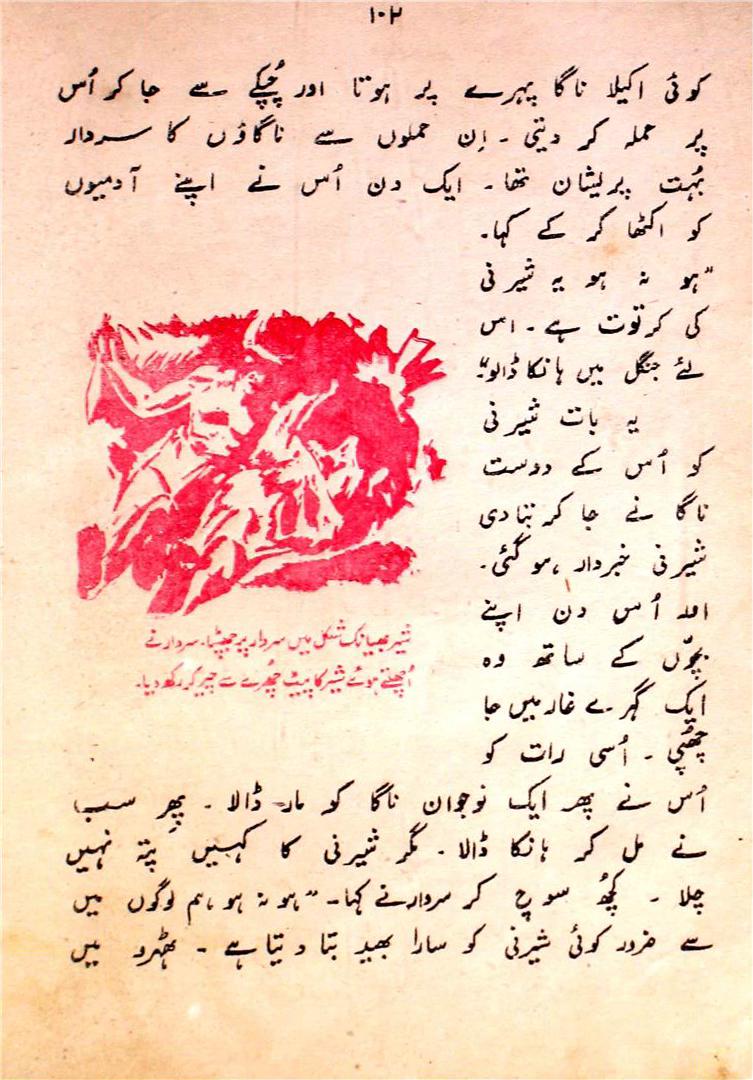 ۱۰۲
کوئی اکیلا ناگا پہرے پر ہوتا اور چُپکے سے جا کر اُس
پر حملہ کر دیتی ۔ اِن حملوں سے ناگاؤں کا سردار
بہُت پریشان تھا۔ ایک دن اُس نے اپنے آدمیوں
کو اکٹھا کر کے کہا۔
"ہو نہ ہو یہ شیرنی
کی کرتوت ہے ۔ اس
لئے جنگل میں ہانکا ڈالو"۔
یہ بات شیرنی
کو اُس کے دوست
ناگا نے جا کر بتا دی
شیرنی خبردار ہو گئی۔
اور اُس دن اپنے
بچّوں کے ساتھ وہ
ایک گہرے غار میں جا
چھپی ۔ اُسی رات کو
شیر بھیانک شکل میں سردار پر جھپٹا۔ سردار نے
اُچھلتے ہوئے شیر کا پیٹ چھُرے سے چیر کر رکھ دیا۔
اُس نے پھر ایک نوجوان ناگا کو مار ڈالا ۔ پھر سب
نے مل کر ہانکا ڈالا ۔ مگر شیرنی کا کہیں پتہ نہیں
چلا ۔ کچھُ سوچ کر سردار نے کہا۔ "ہو نہ ہو ہم لوگوں میں
سے ضرور کوئی شیرنی کو سارا بھید بتا دیتا ہے ۔ ٹھہرو میں